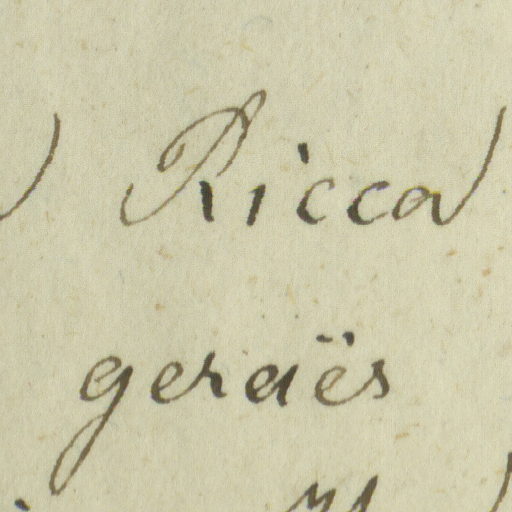 Ricca
geraës